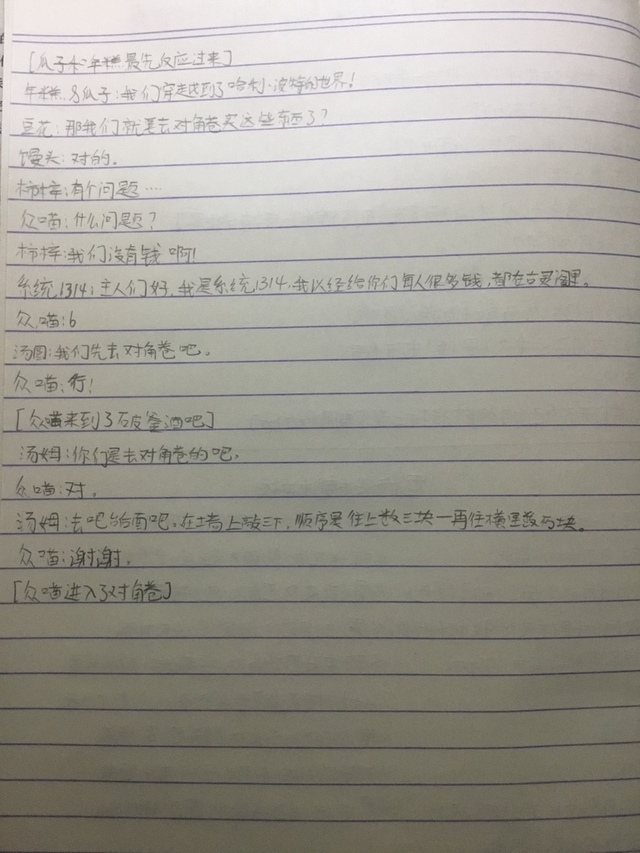 [瓜子和年糕最先反应过来]
年糕&瓜子:我们穿越到了哈利·波特的世界!
豆花:那我们就要去对角巷买这些东西了?
馒头:对的。
柿梓:有个问题....
众喵:什么问题?
柿梓:我们没有钱啊!
系统1314:主人们好,我是系统1314.我以经给你们每人很多钱,都在古灵阁里。
众喵:6
汤圆:我们先去对角巷吧。
众喵:行!
[众喵来到了破釜酒吧]
汤姆:你们是去对角巷的吧。
众喵:对.
汤姆:去吧后面吧,在墙上敲三下,顺序是往上数三块—再往横里数两块。
众喵:谢谢.
[众喵进入了对角巷]